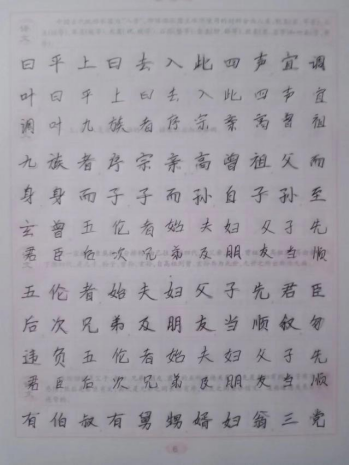 曰平上曰去入此四声宜调
叶曰平上曰去入此四声宜
调叶九族者序宗亲高曾祖
九族者序宗亲高曾祖父而
身身而子子而孙自子孙至
玄曾五伦者始夫妇父子先
君臣后次兄弟及朋友当顺
五伦者始夫妇父子先君臣
后次兄弟及朋友当顺叙勿
违负五伦者始夫妇父子先
君臣后次兄弟及朋友当顺
有伯叔有舅甥婿妇翁三党